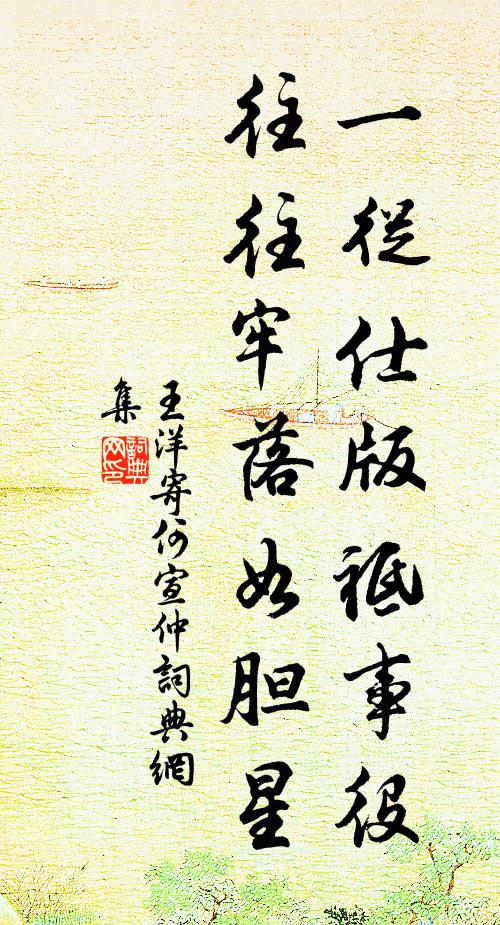 一從仕版祗事役
往往牢落如胆星
王洋寄何宣仲詞典網
集
詞典
网印